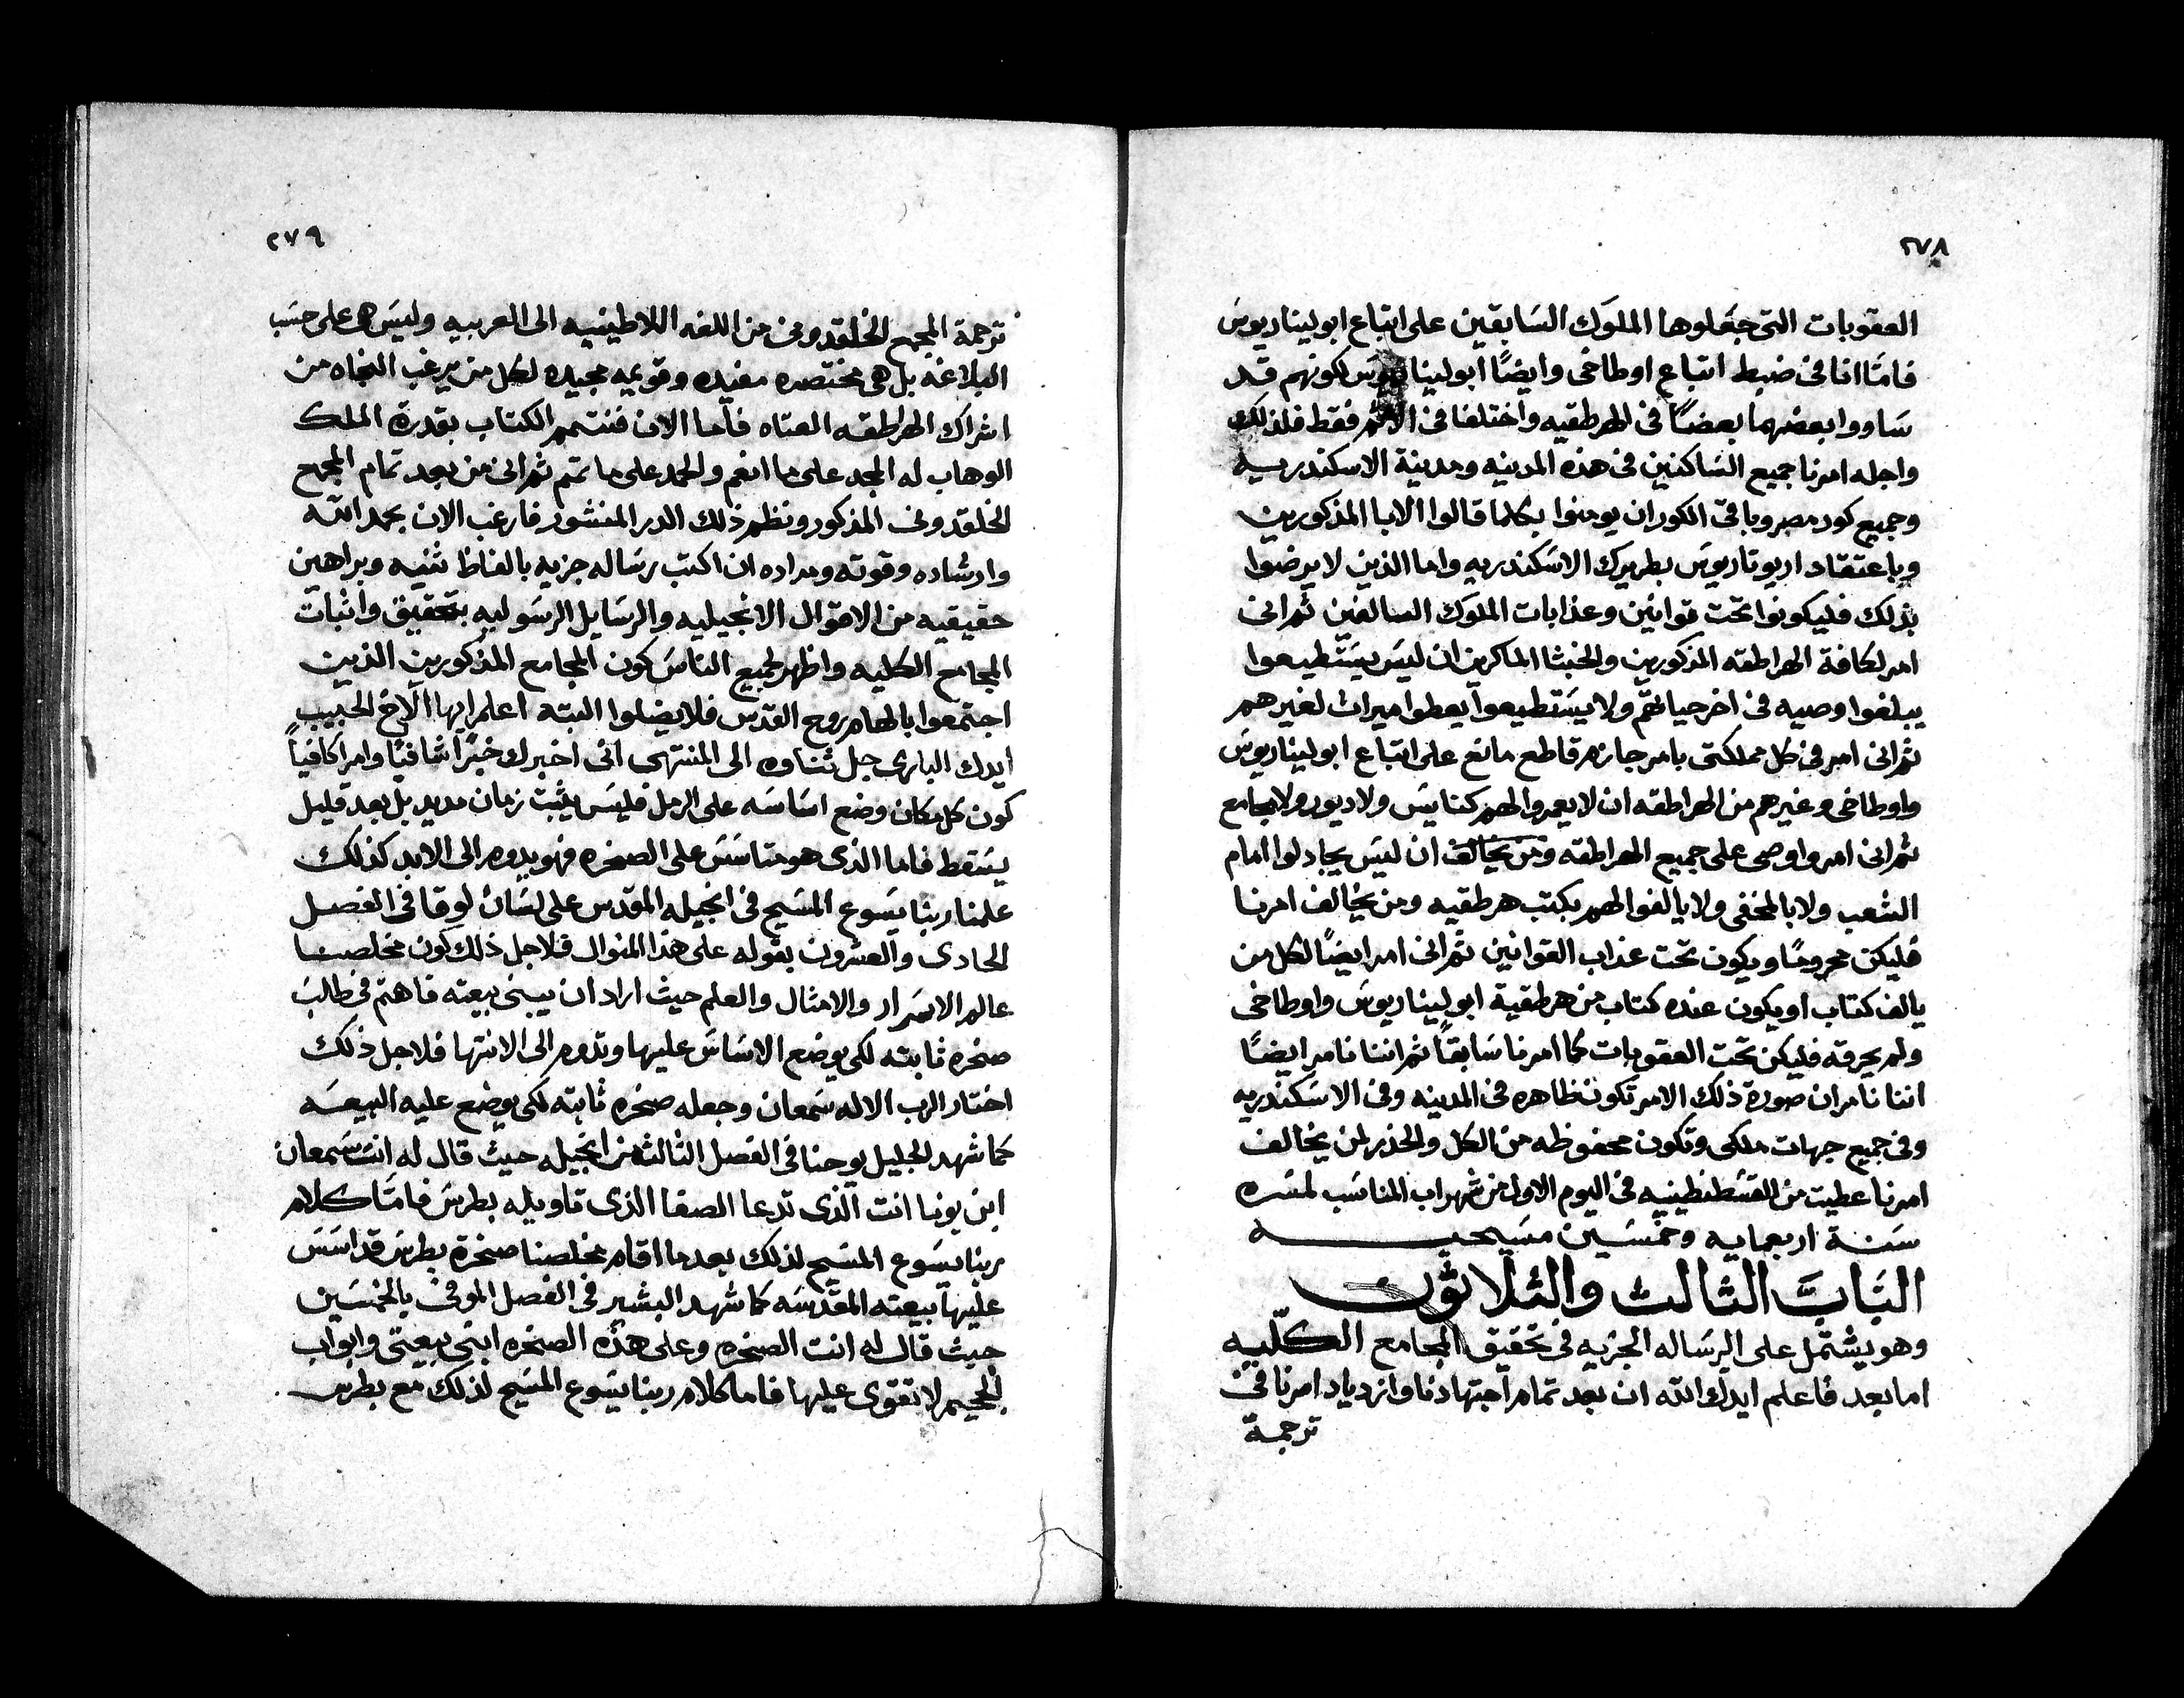 ٢٧٨
العقوبات التى جعلوها الملوك السابقين على اتباع ابوليناريوس
فامّا انا فى ضبط اتباع اوطاخى وايضًا ابوليناريوس لكونهم قد
ساووا بعضهما بعضًا فى الهرطقيه واختلفا فى الاثم فقط فلذلك
واجله امرنا جميع الساكنين فى هذه المدينه ومدينة الاسكندريه
وجميع كور مصر وباقى الكور ان يومنوا بكلما قالوا الابا المذكورين
وباعتقاد اريوتاريوس بطريرك الاسكندريه واما الذين لا يرضوا
بذلك فليكونوا تحت قوانين وعذابات الملوك السالفين ثم انى
امر لكافة الهراطقه المذكورين والخبثا الماكرين ان ليس يستطيعوا
يبلغوا وصيه فى اخر حياتهم ولا يستطيعوا يعطوا ميراث لغيرهم
ثم انى امر فى كل مملكتى بامر جازم قاطع مانع على اتباع ابوليناريوس
واوطاخى وغيرهم من الهراطقه ان لا يعمروا لهم كنايس ولا ديور ولا مجامع
ثم انى امر واوصى على جميع الهراطقه ومن يخالف ان ليس يجادلوا امام
الشعب ولا بالمخفى ولا يالفوا لهم بكتب هرطقيه ومن يخالف امرنا
فليكن محرومًا ويكون تحت عذاب القوانين ثم انى امر ايضًا لكل من
يالف كتاب او يكون عنده كتاب من هرطقية ابوليناريوس واوطاخى
ولم يحرقه فليكن تحت العقوبات كما امرنا سابقًا ثم اننا نامر ايضًا
اننا نامر ان صورة ذلك الامر تكون ظاهره فى المدينه وفى الاسكندريه
وفى جميع جهات ملكى وتكون محفوظه من الكل والحذر لمن يخالف
امرنا عطيت من القسطنطينيه فى اليوم الاول من شهر اب المناسب لمسره
سنة اربعمايه وخمسين مسيحيه
الباب الثالث والثلاثون
وهو يشتمل على الرساله الجزيه فى تحقيق المجامع الكلّيه
اما بعد فاعلم ايدك الله ان بعد تمام اجتهادنا وازدياد امرنا فى
ترجمة
٢٧٩
ترجمة المجمع الخلقدونى من اللغه اللاطينيه الى العربيه وليس هى على حسب
البلاغه بل هى مختصره مفيده وقويمه مجيده لكل من يرغب النجاه من
اشراك الهراطقه العتاه فاما الان فنتمم الكتاب بقدرة الملك
الوهاب له المجد على ما انعم والحمد على ما تمم ثم انى من بعد تمام المجمع
الخلقدونى المذكور ونظم ذلك الدر المنشور فارغب الان بحمد الله
وارشاده وقوته ومراده ان اكتب رساله جزيه بالفاظ ثنيه وبراهين
حقيقيه من الاقوال الانجيليه والرسايل الرسوليه بتحقيق واثبات
المجامع الكليه واظهر لجميع الناس كون المجامع المذكورين الذين
اجتمعوا بالهام روح القدس فلا يضلوا البته اعلم ايها الاخ الحبيب
ايدك البارى جل ثناوه الى المنتهى انى اخبرك خبرًا شافيًا وامرًا كافيًا
كون كل مكان وضع اساسه على الرمل فليس يثبت زمان مديد بل بعد قليل
يسقط فاما الذى هو متاسس على الصخره فهو يدوم الى الابد كذلك
علمنا ربنا يسوع المسيح فى انجيله المقدس على لسان لوقا فى الفصل
الحادى والعشرون بقوله على هذا المنوال فلاجل ذلك كون مخلصنا
عالم الاسرار والامثال والعلم حيث اراد ان يبنى بيعته فاهتم فى طالب
صخره ثابته لكى يوضع الاساس عليها وتدوم الى الانتها فلاجل ذلك
اختار الرب الاله سمعان وجعله صخره ثابته لكى يوضع عليه البيعه
كما شهد الجليل يوحنا فى الفصل الثالث من انجيله حيث قال له انت سمعان
ابن يونا انت الذى تدعا الصفا الذى تاويله بطرس فامّا كلام
ربنا يسوع المسيح لذلك بعدما اقام مخلصنا صخرة بطرس قد اسس
عليها بيعته المقدسه كما شهد البشير فى الفصل الموفى بالخمسين
حيث قال له انت الصخره وعلى هذه الصخره ابنى بيعتى وابواب
الجحيم لا تقوى عليها فاما كلام ربنا يسوع المسيح لذلك مع بطرس